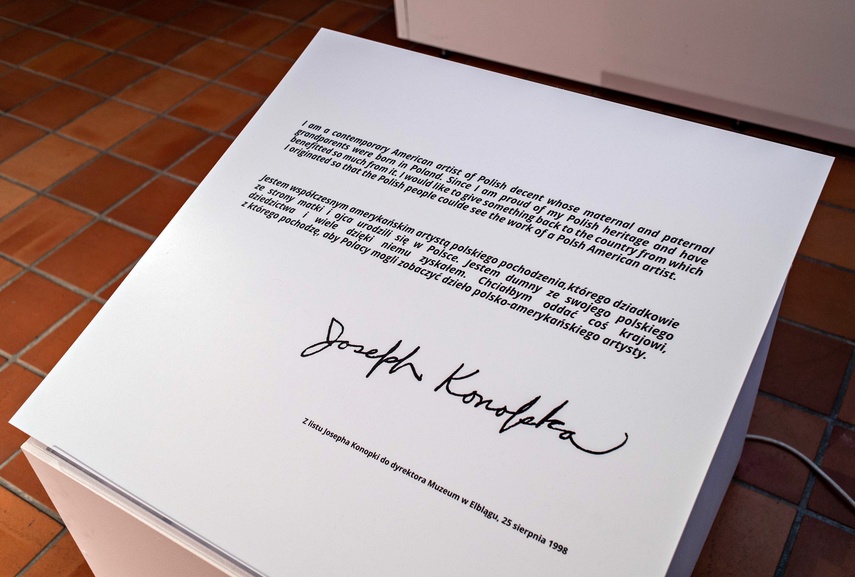 I am a contemporary American artist of Polish decent whose maternal and paternal
grandparents were born in Poland. Since I am proud of my Polish heritage and have
benefitted so much from it. I would like to give something back to the country from which
I originated so that the Polish people coulde see the work of a Polish American artist.
Jestem współczesnym amerykańskim artystą polskiego pochodzenia, którego dziadkowie
ze strony matki i ojca urodzili się w Polsce. Jestem dumny ze swojego polskiego
dziedzictwa i wiele dzięki niemu zyskałem. Chciałbym oddać coś krajowi,
z którego pochodzę, aby Polacy mogli zobaczyć dzieło polsko-amerykańskiego artysty.
Joseph Konopka
Z listu Josepha Konopki do dyrektora Muzeum w Elblągu, 25 sierpnia 1998